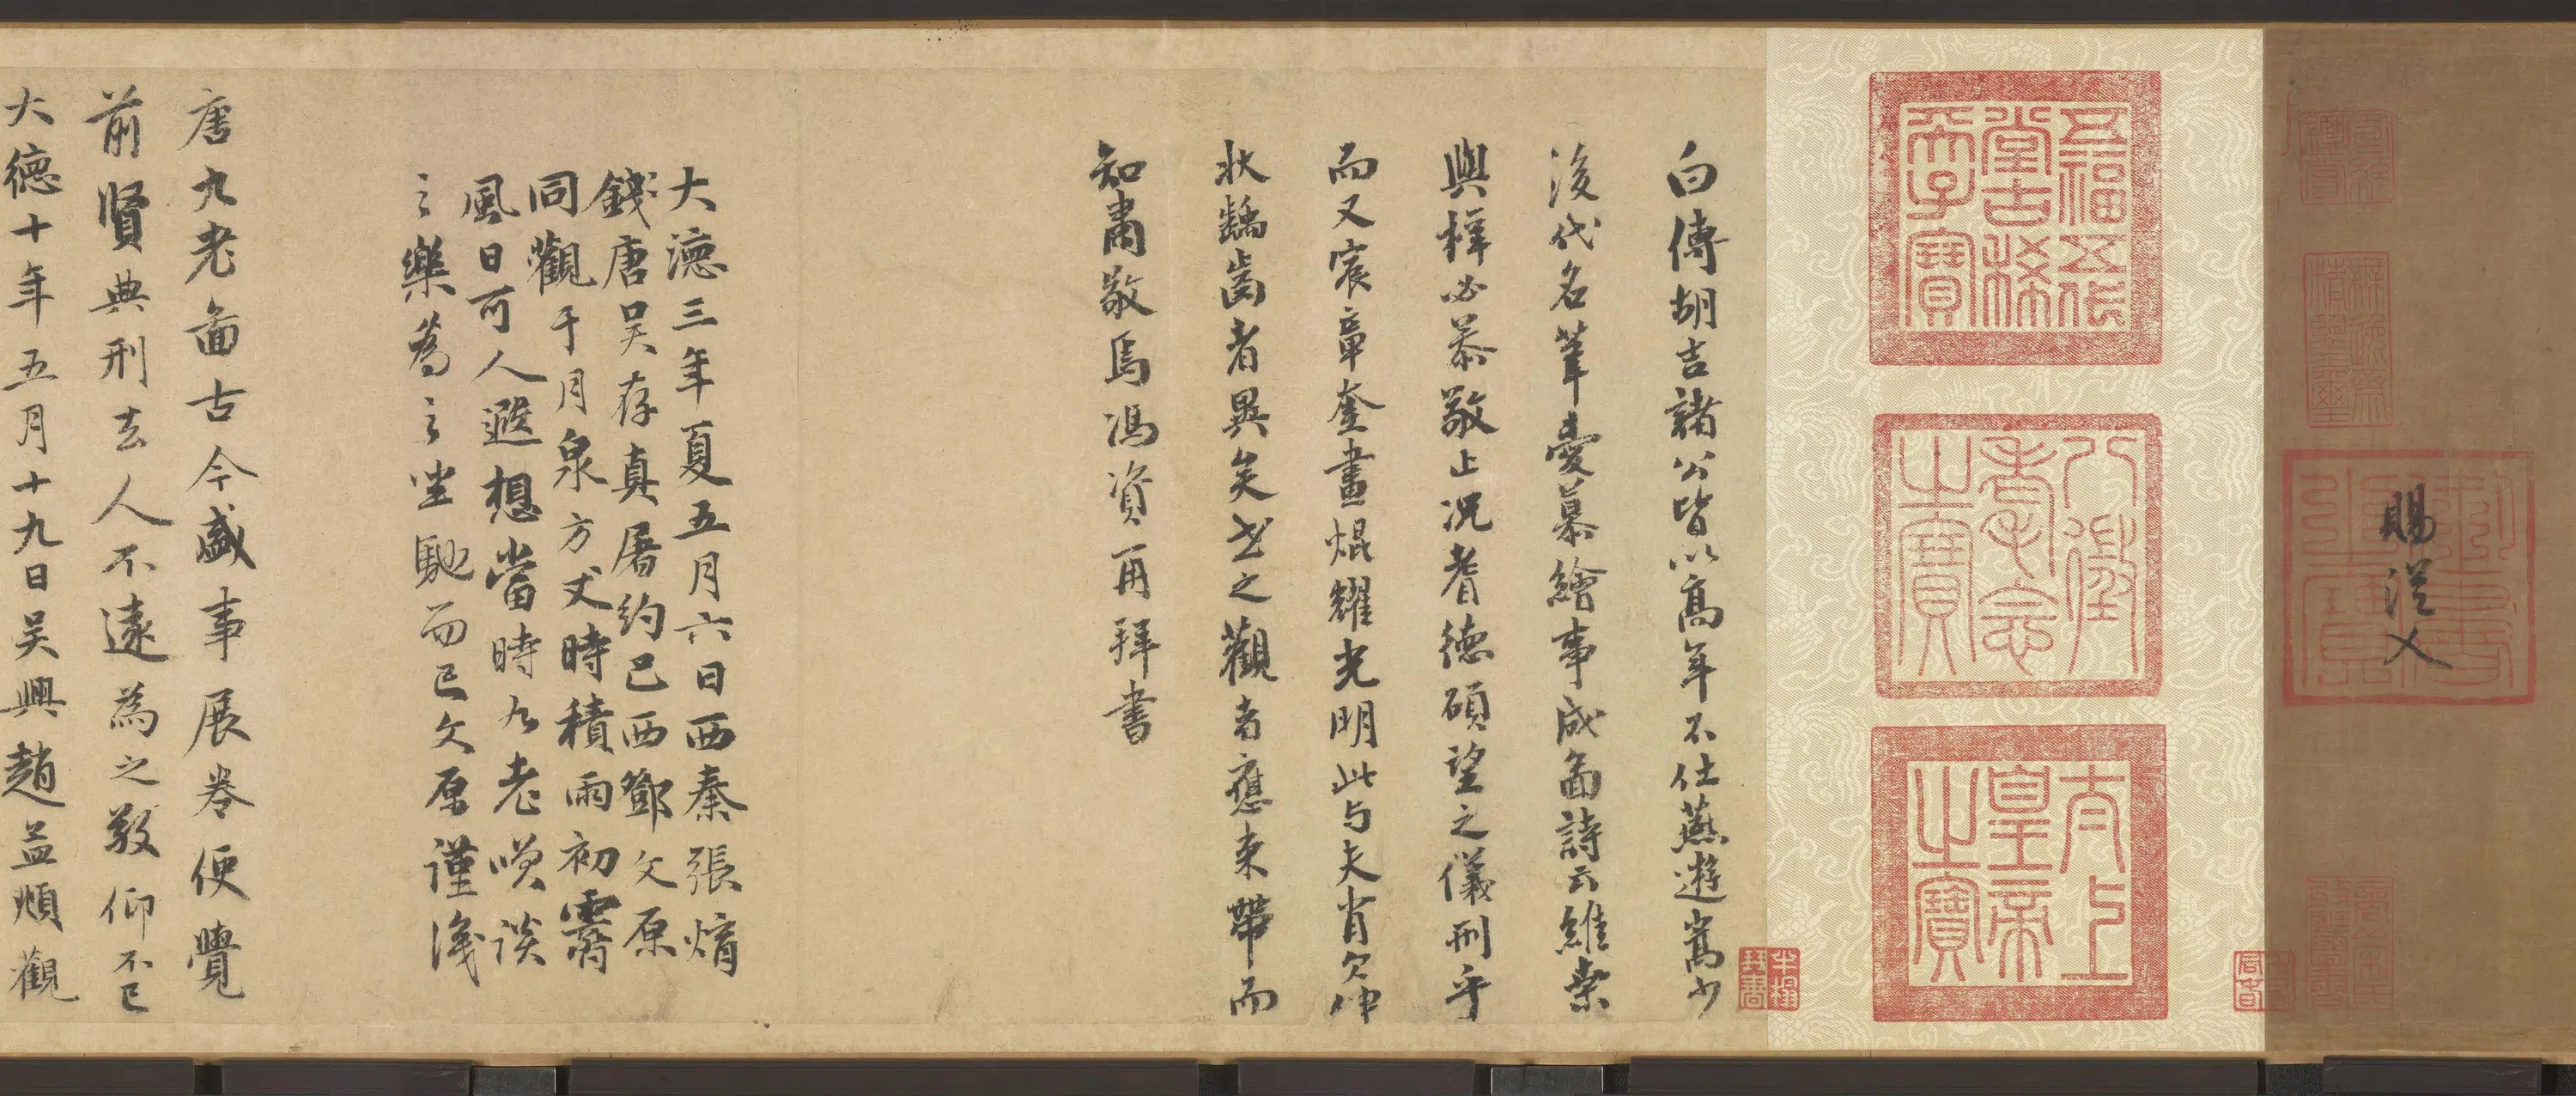 賜從父
五福五代
堂古稀
天子寶
八徵
耄念
之寶
太上
皇帝
之寶
白傅胡吉諸公皆以高年不仕燕遊嵩少
後代名筆憂慕繪事成圖詩云維桑
與梓必恭敬止況耆德碩望之儀刑乎
而又宸章奎畫焜耀光明此与夫肖欠伸
狀齲齒者異矣世之觀者應束帶而
知肅敬焉馮資再拜書
大德三年夏五月六日西秦張煯
錢唐吳存真屠約巴西鄧文原
同觀于月泉方丈時積雨初霽
風日可人遐想當時九老嘆談
之樂為之坐馳而已文原謹識
唐九老圖古今盛事展卷便覺
前賢典刑去人不遠為之敬仰不已
大德十年五月十九日吳興趙孟頫觀